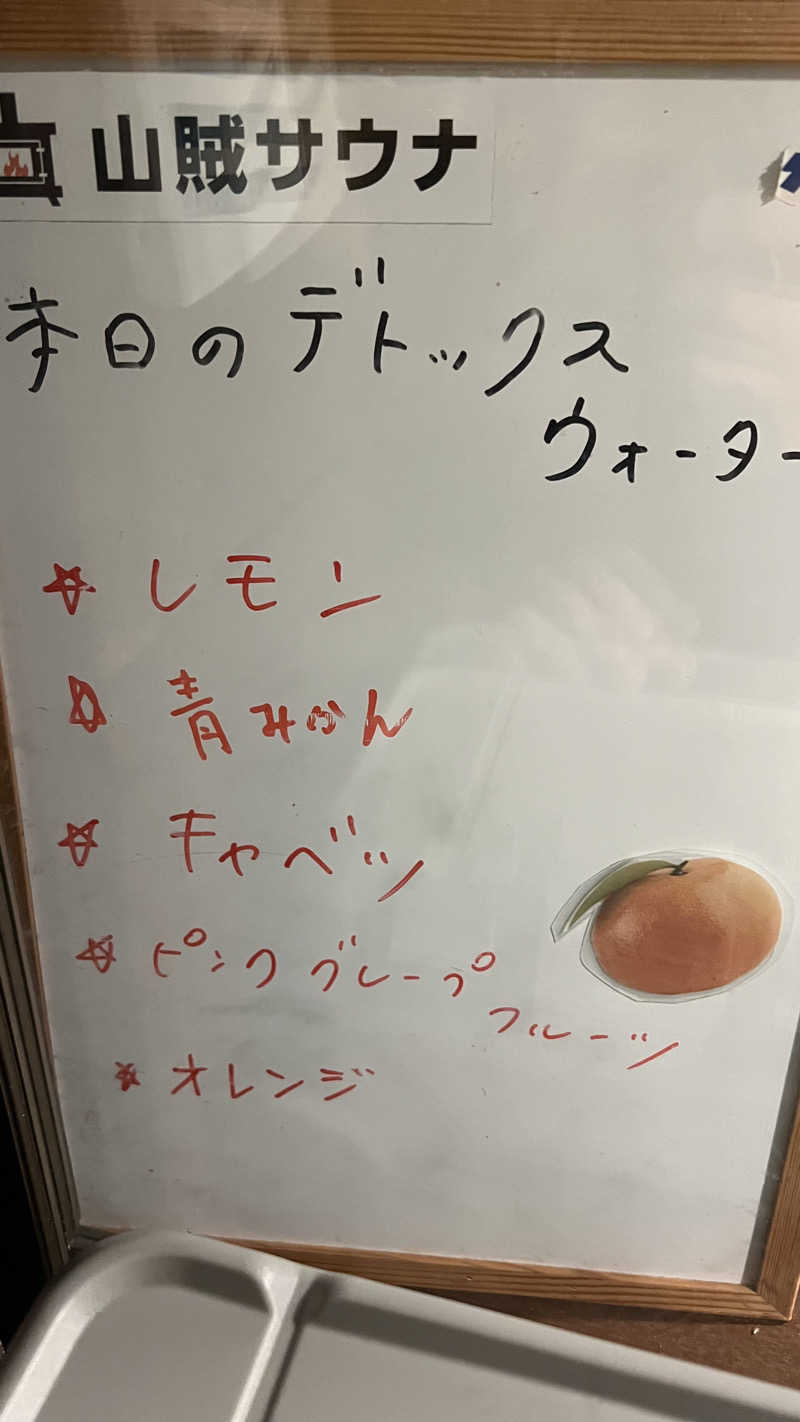 山賊サウナ
本日のデトックス
ウォーター
☆ レモン
☆ 青みかん
☆ キャベツ
☆ ピンクグレープ
フルーツ
☆ オレンジ